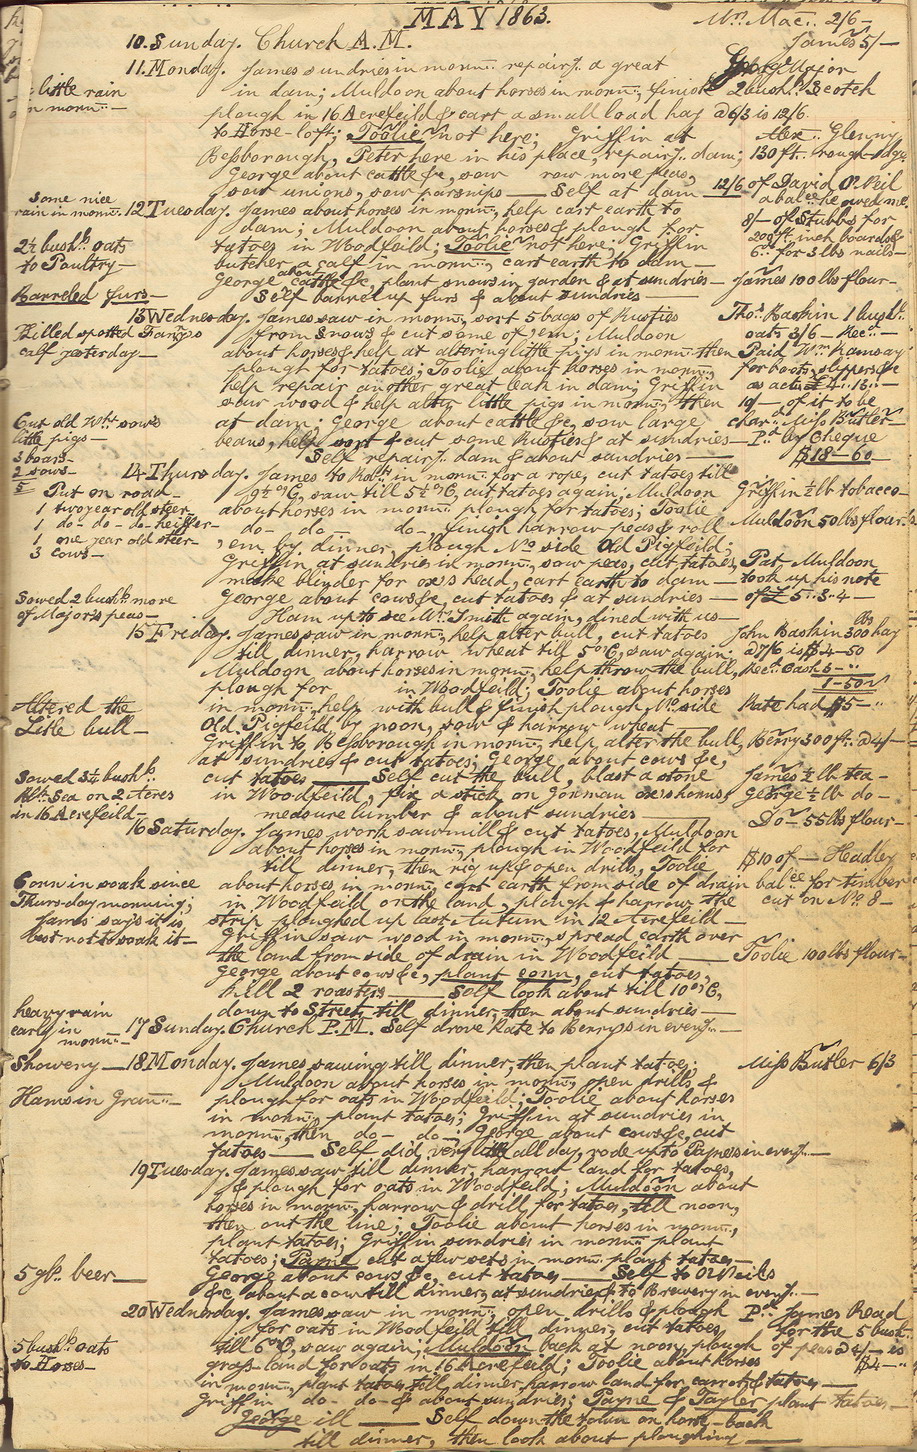 MAY 1863.
Mrs. Mac.. 2/6-
10. Sunday. Church A.M.
James 5/-
11. Monday. James sundries in mornn. repairg. a great
George Major
little rain
in mornn.-
in dam; Muldoon about horses in mornn, finish
2 bush.ls Scotch
plough in 16 Acrefeild & cart a small load hay
@ 6/3 is 12/6
to Horse-loft; Toolie not here; Griffin at
Alex.. Glenny
Beſsborough, Peter here in his place, repairg. dam;
130 ft. rough edge
George about cattle &c, sow row more peas,
sow unions, sow parsnips — Self at dam
12/6 of David O'Neil
a balce. he owed me.
Some nice
rain in mornn.
12 Tuesday. James about horses in mornn, help cart earth to
dam; Muldoon about horses & plough for
8/- of Stubbs for
200 ft. inch boards &
2½ bush.ls oats
to Poultry-
tatoes in Woodfeild; Toolie not here; Griffin
6d. for 3 lbs nails-
butcher a calf in mornn, cart earth to dam-
Barreled furs-
George about cattle &c, plant snows in garden & at sundries-
James 100 lbs flour-
Self barrel up furs & about sundries-
13 Wednesday. James saw in mornn, sort 5 bags of Rusties
Thos. Baskin 1 bush.l
Killed spotted Fanys
calf yesterday-
from Snows & cut some of 'em; Muldoon
oats 3/6 - Recd.-
about horses & help at altering little pigs in mornn. then
Paid Wm. Ramsay
plough for tatoes; Toolie about horses in mornn,
for boots, slippers &c
help repair another great leak in dam; Griffin
as acct. £4..16..-
saw wood & help alter little pigs in mornn, then
10/- of it to be
Cut old Wht. sow's
little pigs-
at dam; George about cattle &c, sow large
chard. Miſs Butler-
3 boars-
2 sows-
5
beans, help sort & cut some Rusties & at sundries-
Pd. by Cheque
Self repairg. dam & about sundries-
$18-60
14 Thursday. James to Robts. in mornn. for a rope, cut tatoes till
Put on road-
9½ O'C, saw till 5½ O'C, cut tatoes again; Muldoon
Griffin ½ lb tobacco-
1 two year old steer
about horses in mornn. plough for tatoes; Toolie
1 do- do- do- heiffer-
do- do- do, finish harrow peas & roll
Muldoon 50 lbs flour.
1 one year old steer-
3 cows-
'em by dinner, plough No. side Old Pigfeild;
Griffin at sundries in mornn, sow peas, cut tatoes,
Pat. Muldoon
make blinder for ox's head, cart earth to dam-
took up his note
Sowed 2 bush.ls more
of Major's peas-
George about cows &c, cut tatoes & at sundries-
of £5..3..4-
Ham up to see Mr. Smith again, dined with us-
15 Friday. James saw in mornn, help alter bull, cut tatoes
John Baskin 300 lbs hay
till dinner, harrow wheat till 5 O'C, saw again;
@ 7/6 is $4-50
Muldoon about horses in mornn, help throw the bull,
Recd. Cash 6-..
plough for in Woodfeild; Toolie about horses
1-50
Altered the
Litle bull-
in mornn, help with bull & finish plough No. side
Kate had $5-..
Old Pigfeild by noon, sow & harrow wheat-
Griffin to Beſsborough in mornn, help alter the bull,
Berry 300 ft. @ 4/-
at sundries & cut tatoes; George about cows &c,
Sowed 3¼ bush.ls
Blk. Sea on 2 Acres
in 16 Acrefeild-
cut tatoes — Self cut the bull, blast a stone
James ½ lb tea-
in Woodfeild, fix a stick on Gorman ox's horns,
George ½ lb do-
measure lumber & about sundries-
Do- 55 lbs flour-
16 Saturday. James work sawmill & cut tatoes; Muldoon
about horses in mornn, plough in Woodfeild for
till dinner, then rig up & open drills; Toolie
$10 of - Headley
Corn in soak since
about horses, in mornn, cart earth from side of drain
balce. for timber
Thursday morning;
in Woodfeild on the land, plough & harrow the
cut on No. 8-
James says it is
best not to soak it-
strip ploughed up last Autum in 12 Acrefeild-
Griffin saw wood in mornn, spread earth over
the land from side of drain in Woodfeild-
Toolie 100 lbs flour-
George about cows &c, plant corn, cut tatoes,
kill 2 roasters — Self look about till 10 O'C,
heavy rain
early in
mornn-
down to Street till dinner, then about sundries-
17 Sunday. Church P.M. Self drove Kate to Berrys in eveng.-
Showery-
18 Monday. James sawing till dinner, then plant tatoes;
Miſs Butler 6/3
Muldoon about horses in mornn, open drills &
Hams in Gran..-
plough for oats in Woodfeild; Toolie about horses
in mornn, plant tatoes; Griffin at sundries in
mornn, then do- do-; George about cows &c, cut
tatoes — Self did very little all day, rode up to Paynes in eveng.-
19 Tuesday. James saw till dinner, harrow land for tatoes,
& plough for oats in Woodfeild; Muldoon about
horses in mornn, harrow & drill for tatoes, till noon,
then out the line; Toolie about horses in mornn,
plant tatoes; Griffin sundries in mornn plant
tatoes; Payne cut a few sets in mornn. plant tatoes-
5 gls. beer-
George about cows &c, cut tatoes — Self to O'Neils
&c, about a cow till dinner, at sundries & to Brewery in eveng.-
20 Wednesday. James saw in mornn, open drills & plough
Pd. James Read
for oats in Woodfeild till dinner, cut tatoes
for the 5 bush.
5 bush.ls oats
to Horses-
till 6 O'C, saw again; Muldoon back at noon, plough
of peas @ 4/- is
graſs land for oats in 16 Acrefeild; Toolie about horses
$4-..
in mornn, plant tatoes till dinner, harrow land for carrots & tatoes-
Griffin do- do- & about sundries; Payne & Tayler plant tatoes-
George ill — Self down the town on horse-back
till dinner, then look about ploughing-